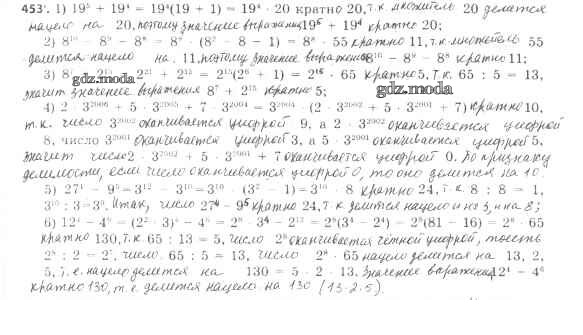 453'. 1) 19⁵ + 19⁴ = 19⁴(19 + 1) = 19⁴ · 20 кратно 20, т.к. множитель 20 делится
нацело на 20, поэтому значение выражения 19⁵ + 19⁴ кратно 20;
2) 8¹⁰ − 8⁹ − 8⁸ = 8⁸ · (8² − 8 − 1) = 8⁸ · 55 кратно 11, т.к. множитель 55
делится нацело на 11, поэтому значение выражения 8¹⁰ − 8⁹ − 8⁸ кратно 11;
3) 8 2²¹ + 2¹⁵ = 2¹⁵(2⁶ + 1) = 2¹⁵ · 65 кратно 5, т.к. 65 : 5 = 13,
gdz.moda
значит значение выражения 8⁷ + 2¹⁵ кратно 5;
gdz.moda
4) 2 · 3²⁰⁰⁶ + 5 · 3²⁰⁰⁵ + 7 · 3²⁰⁰⁴ = 3²⁰⁰⁴ · (2 · 3²⁰⁰² + 5 · 3²⁰⁰¹ + 7) кратно 10,
т.к. число 3²⁰⁰² оканчивается цифрой 9, а 2 · 3²⁰⁰² оканчивается цифрой
8, число 3²⁰⁰¹ оканчивается цифрой 3, а 5 · 3²⁰⁰¹ оканчивается цифрой 5,
значит число 2 · 3²⁰⁰² + 5 · 3²⁰⁰¹ + 7 оканчивается цифрой 0. По признаку
делимости, если число оканчивается цифрой 0, то оно делится на 10.
5) 27⁴ − 9⁵ = 3¹² − 3¹⁰ = 3¹⁰ · (3² − 1) = 3¹⁰ · 8 кратно 24, т.к. 8 : 8 = 1,
3¹⁰ : 3 = 3⁹. Итак, число 27⁴ − 9⁵ кратно 24, т.к. делится нацело и на 3, и на 8;
6) 12⁴ − 4⁶ = (2² · 3)⁴ − 4⁶ = 2⁸ · 3⁴ − 2¹² = 2⁸(3⁴ − 2⁴) = 2⁸(81 − 16) = 2⁸ · 65
кратно 130, т.к. 65 : 13 = 5, число 2⁸ оканчивается чётной цифрой, то есть
2⁸ : 2 = 2⁷, число 65 : 5 = 13, число 2⁸ · 65 нацело делится на 13, 2,
5, т.е. нацело делится на 130 = 5 · 2 · 13. Значение выражения 12⁴ − 4⁶
кратно 130, т.е. делится нацело на 130 (13 · 2 · 5).